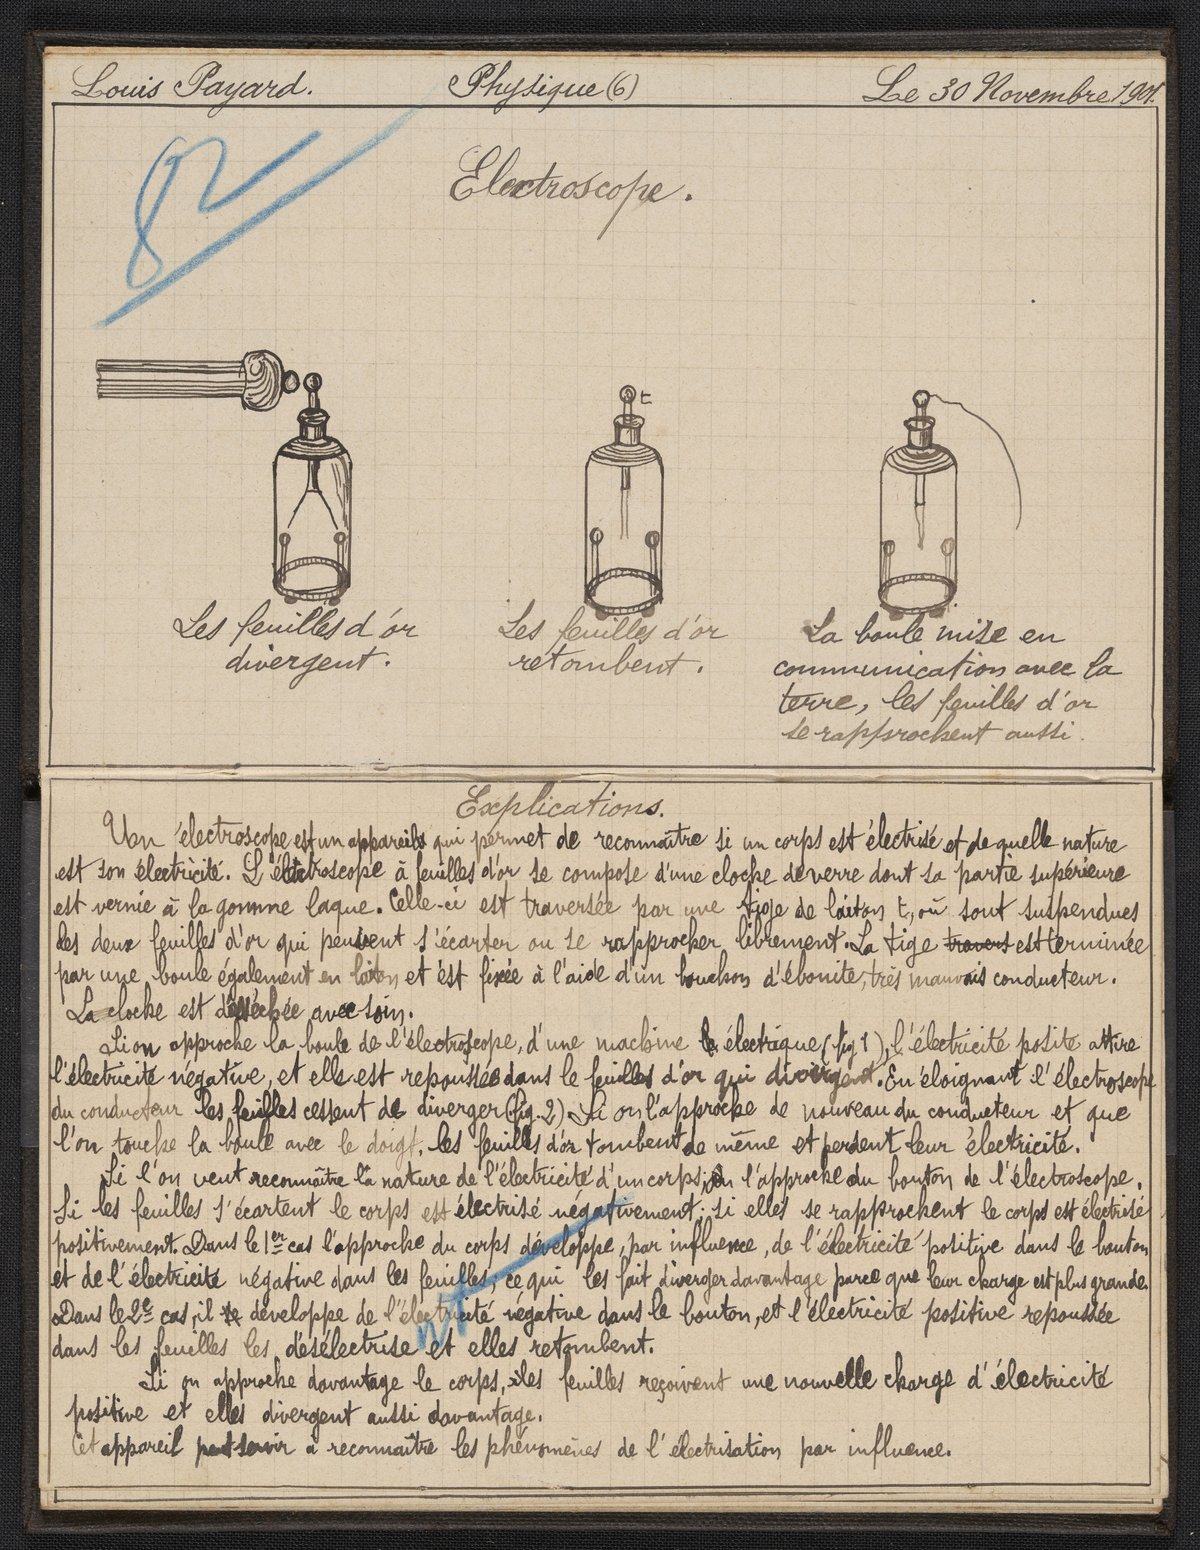 Louis Payard. Physique (6) Le 30 Novembre 1901.
Electroscope.
t
Les feuilles d'or
divergent.
Les feuilles d'or
retombent.
La boule mise en
communication avec la
terre, les feuilles d'or
se rapprochent aussi.
Explications.
Un électroscope est un appareils qui permet de reconnaître si un corps est électrisé et de quelle nature
est son électricité. L'électroscope à feuilles d'or se compose d'une cloche de verre dont sa partie supérieure
est vernie à la gomme laque. Celle-ci est traversée par une tige de laiton t, où sont suspendues
les deux feuilles d'or qui peuvent s'écarter ou se rapprocher librement. La tige travers est terminée
par une boule également en laiton et est fixée à l'aide d'un bouchon d'ébonite, très mauvais conducteur.
La cloche est desséchée avec soin.
Si on approche la boule de l'électroscope, d'une machine électrique (fig 1), l'électricité positi attire
l'électricité négative, et elle est repoussée dans le feuilles d'or qui divergent. En éloignant l'électroscope
du conducteur les feuilles cessent de diverger (fig. 2) Si on l'approche de nouveau du conducteur et que
l'on touche la boule avec le doigt, les feuilles d'or tombent de même et perdent leur électricité.
Si l'on veut reconnaître la nature de l'électricité d'un corps, on l'approche du bouton de l'électroscope.
Si les feuilles s'écartent le corps est électrisé négativement; si elles se rapprochent le corps est électrisé
positivement. Dans le 1er cas l'approche du corps développe, par influence, de l'électricité positive dans le bouton
et de l'électricité négative dans les feuilles, ce qui les fait diverger davantage parce que leur charge est plus grande.
Dans le 2e cas, il développe de l'électricité négative dans le bouton, et l'électricité positive repoussée
dans les feuilles les désélectrise et elles retombent.
Si on approche davantage le corps, les feuilles reçoivent une nouvelle charge d'électricité
positive et elles divergent aussi davantage.
Cet appareil peut servir à reconnaître les phénomènes de l'électrisation par influence.